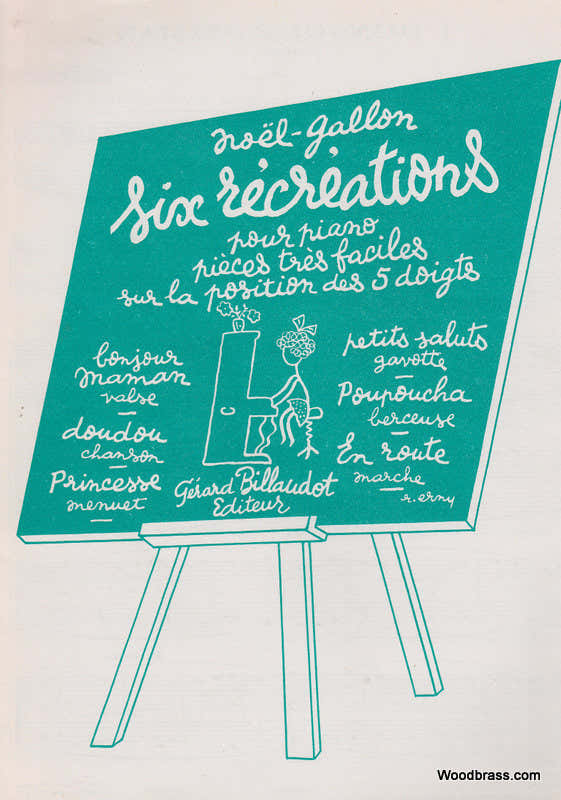 noël-gallon
six récréations
pour piano
pièces très faciles
sur la position des 5 doigts
bonjour
maman
valse
doudou
chanson
Princesse
menuet
petits saluts
gavotte
Poupoucha
berceuse
En route
marche
r. erny
Gérard Billaudot
Editeur
Woodbrass.com